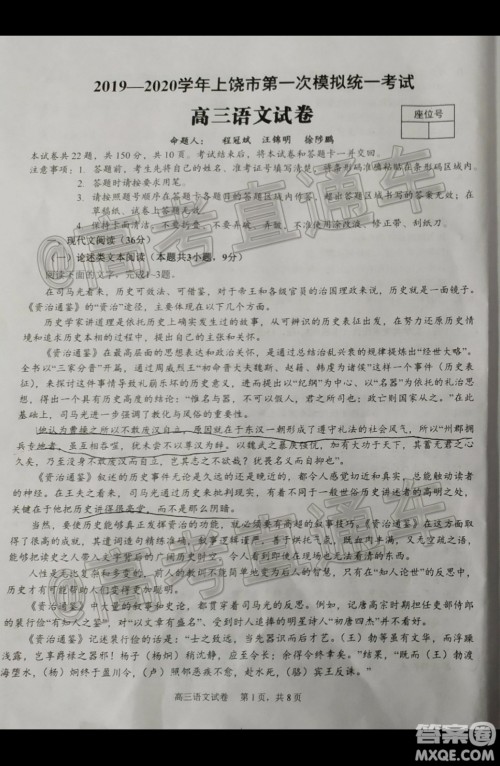 2019—2020学年上饶市第一次模拟统一考试
高三语文试卷
座位号
命题人： 程冠斌 汪锦明 徐陟鹏
本试卷共22题，共150分，共10页。考试结束后，将本试卷和答题卡一并交回。
注意事项：1. 答题前，考生先将自己的姓名、准考证号填写清楚，将条形码准确粘贴在条形码区域内。
2. 答题时请按要求用笔。
3. 请按照题号顺序在答题卡各题目的答题区域内作答，超出答题区域书写的答案无效；在
草稿纸、试卷上答题无效。
4. 保持卡面清洁，不要折叠、不要弄破、弄皱，不准使用涂改液、修正带、刮纸刀。
一、现代文阅读（36分）
（一）论述类文本阅读（本题共3小题，9分）
阅读下面的文字，完成1-3题。
在司马光看来，历史可敬，法、可借鉴，对于帝王和各级官员的治国理政来说，历史就是一面镜子。
《资治通鉴》的“资治”途径，主要体现在以下几个方面。
历史学家讲道理是依托历史上确实发生过的故事，从可辨识的历史表征出发，在努力还原历史情境
和追求历史本相的过程中，提出自己的主张和怀抱。
《资治通鉴》在最高层面的思想表达和政治关怀，是通过总结治乱兴衰的规律提炼出“经世大略”。
全书以“三家分晋”开篇，通过周威烈王“初命晋大夫魏斯、赵籍、韩虔为诸侯”这样一个事件（历史
表征），来探讨这件事情导致礼崩乐坏的历史影响，进而提出以“纪纲”为中心、以“名器”为依托的礼治思
想，得出一个具有政治高度的思想和心得：“唯名与器，不可以假人，君之所司也；政亡则国家从之。”在此
基础上，司马光进一步强调了教化与风俗的重要意义。
他认为曹操之所以不敢废汉自立，原因就在于东汉一朝形成了遵守礼法的社会风气，所以“州郡拥
兵专地者，虽互相吞噬，犹未尝不以尊汉为辞。以魏武之暴戾强伉，加有大功于天下，其蓄无君之心
久矣，乃至没身不敢废汉而自立，岂其志之不欲哉？犹畏名义而自抑也”
《资治通鉴》叙述的历史事件无论是久远的还是晚近的，都令人感觉切近和真实，能够触动读者
的神经。在王夫之看来，司马光通过历史来批判现实，有着不同于一般世俗历史讲述者的高明之处，
关键在于他把历史讲得很高尚，而不是那么阴暗。
当然，要使历史能够真正发挥资治的功能，就必须通过感人的叙事来实现。《资治通鉴》在这方面
取得了很高的成就，其遣词造句精练准确、行文叙事详略得当，善于烘托气氛，又无空疏之语，
能够把读者的思绪带入文字背后的广阔历史时空，令人看到在别的史书中也无法看清的东西。
人性是无比复杂和多变的，前人的教训不能简单地适用于今人。只有在“知人论世”的时候，
历史才有可能帮助到我们。
《资治通鉴》中大量的叙事和史论，都寄寓着司马光的深刻关怀。例如，记唐高宗时期担任吏部侍郎
的裴行俭“有知人之鉴”，对“以文章有盛名”、受到时人追捧的明星诗人“初唐四杰”并不看好。
《资治通鉴》记述裴行俭的话是：“士之致远，当先器识而后才艺。（王）勃等虽有文华，而浮躁
浅露，岂享爵禄之器邪！杨子（杨炯）稍沉静，应至令长；余得令终幸矣。”结果，“既而（王）勃渡海
堕水，（杨）炯终于盈川令，（卢）照邻恶疾不愈，赴水死，（骆）宾王反诛。”
高三语文试卷 第1页，共8页
@高考直通车
答案圈
MXQE.COM